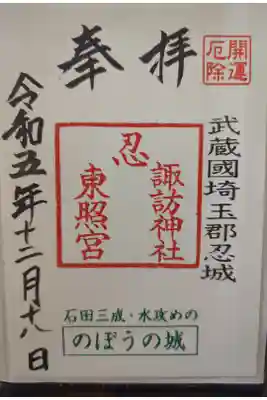 開運
厄除
奉拝
武蔵國埼玉郡忍城
諏訪神社
忍
東照宮
石田三成・水攻めの
のぼうの城
令和五年十二月十八日